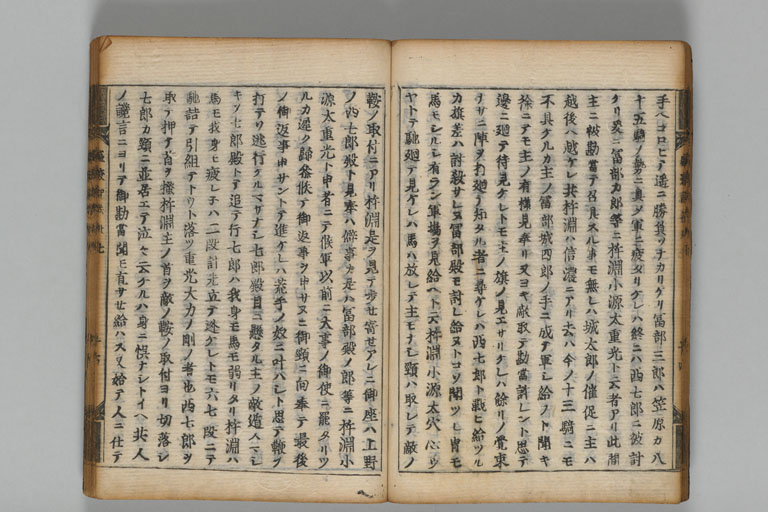 手ヘコロヒテ遥ニ勝負ツナカリケリ冨部三郎ハ笠原カ八
十五騎ノ勢ニ具シ軍ニ疲タリケレハ終ニハ西七郎ニ被討
ケリ爰ニ冨部カ郎等ニ杵淵小源太重光ト云者アリ此間
主ニ被勘當テ召具スル事モ無レハ城太郎ノ催促ニ主ハ
越後ヘ越ケレ共杵淵ハ信濃ニアリ去ハ今ノ十三騎ニモ
不具ケルカ主ノ冨部城四郎ノ手ニ成テ軍シ給フト聞キ
徐ニテモ主ノ有様見奉リ又ヨキ敵取テ勘當許レント思テ
邊ニ廻テ待見ケレトモ主ノ旗ノ見エサリケレハ餘リノ覺束
ナサニ陣ヲ打廻テ知タル者ニ尋ケレハ西七郎ト戰ヒ給ツル
カ旗差ハ討殺サレヌ冨部殿モ討レ給ヌトコソ聞ツレ冑モ
馬モシルシ有ラン軍場ヲ見給ヘト云杵淵小源太穴心ウ
ヤトテ馳廻テ見ケレハ馬ハ放レテ主モナシ頸ハ取レテ敵ノ
鞍ノ取付ニアリ杵淵是ヲ見テ歩セ寄セアレニ御座ハ上野
ノ西七郎殿ト見奉ハ僻事カ是ハ冨部殿ノ郎等ニ杵淵小
源太重光ト申者ニテ候軍以前ニ大事ノ御使ニ罷タリツ
ルカ遅ク歸参候テ御返事ヲ申サヌニ御頸ニ向奉テ最後
ノ御返事申サントテ進ケレハ荒手ノ奴ニ叶ハシト思テ鞭ヲ
打テソ逃行クマサナシ七郎殿目ニ懸タル主ノ敵遁スマシ
キソ七郎殿トテ追テ行七郎ハ我身モ馬モ弱リタリ杵淵ハ
馬モ我身モ疲レネハ二段計先立テ逃ケレトモ六七段ニテ
馳詰テ引組テトウト落ツ重光大力ノ剛ノ者也西七郎ヲ
取テ押ヘ首ヲ掻杵淵主ノ首ヲ敵ノ鞍ノ取付ヨリ切落シ
七郎カ頸ニ並居エテ泣々云ケルハ身ニ悞ナシトイヘ共人
ノ讒言ニヨリテ御勘當聞モ直サセ給ハス又始テ人ニ仕テ